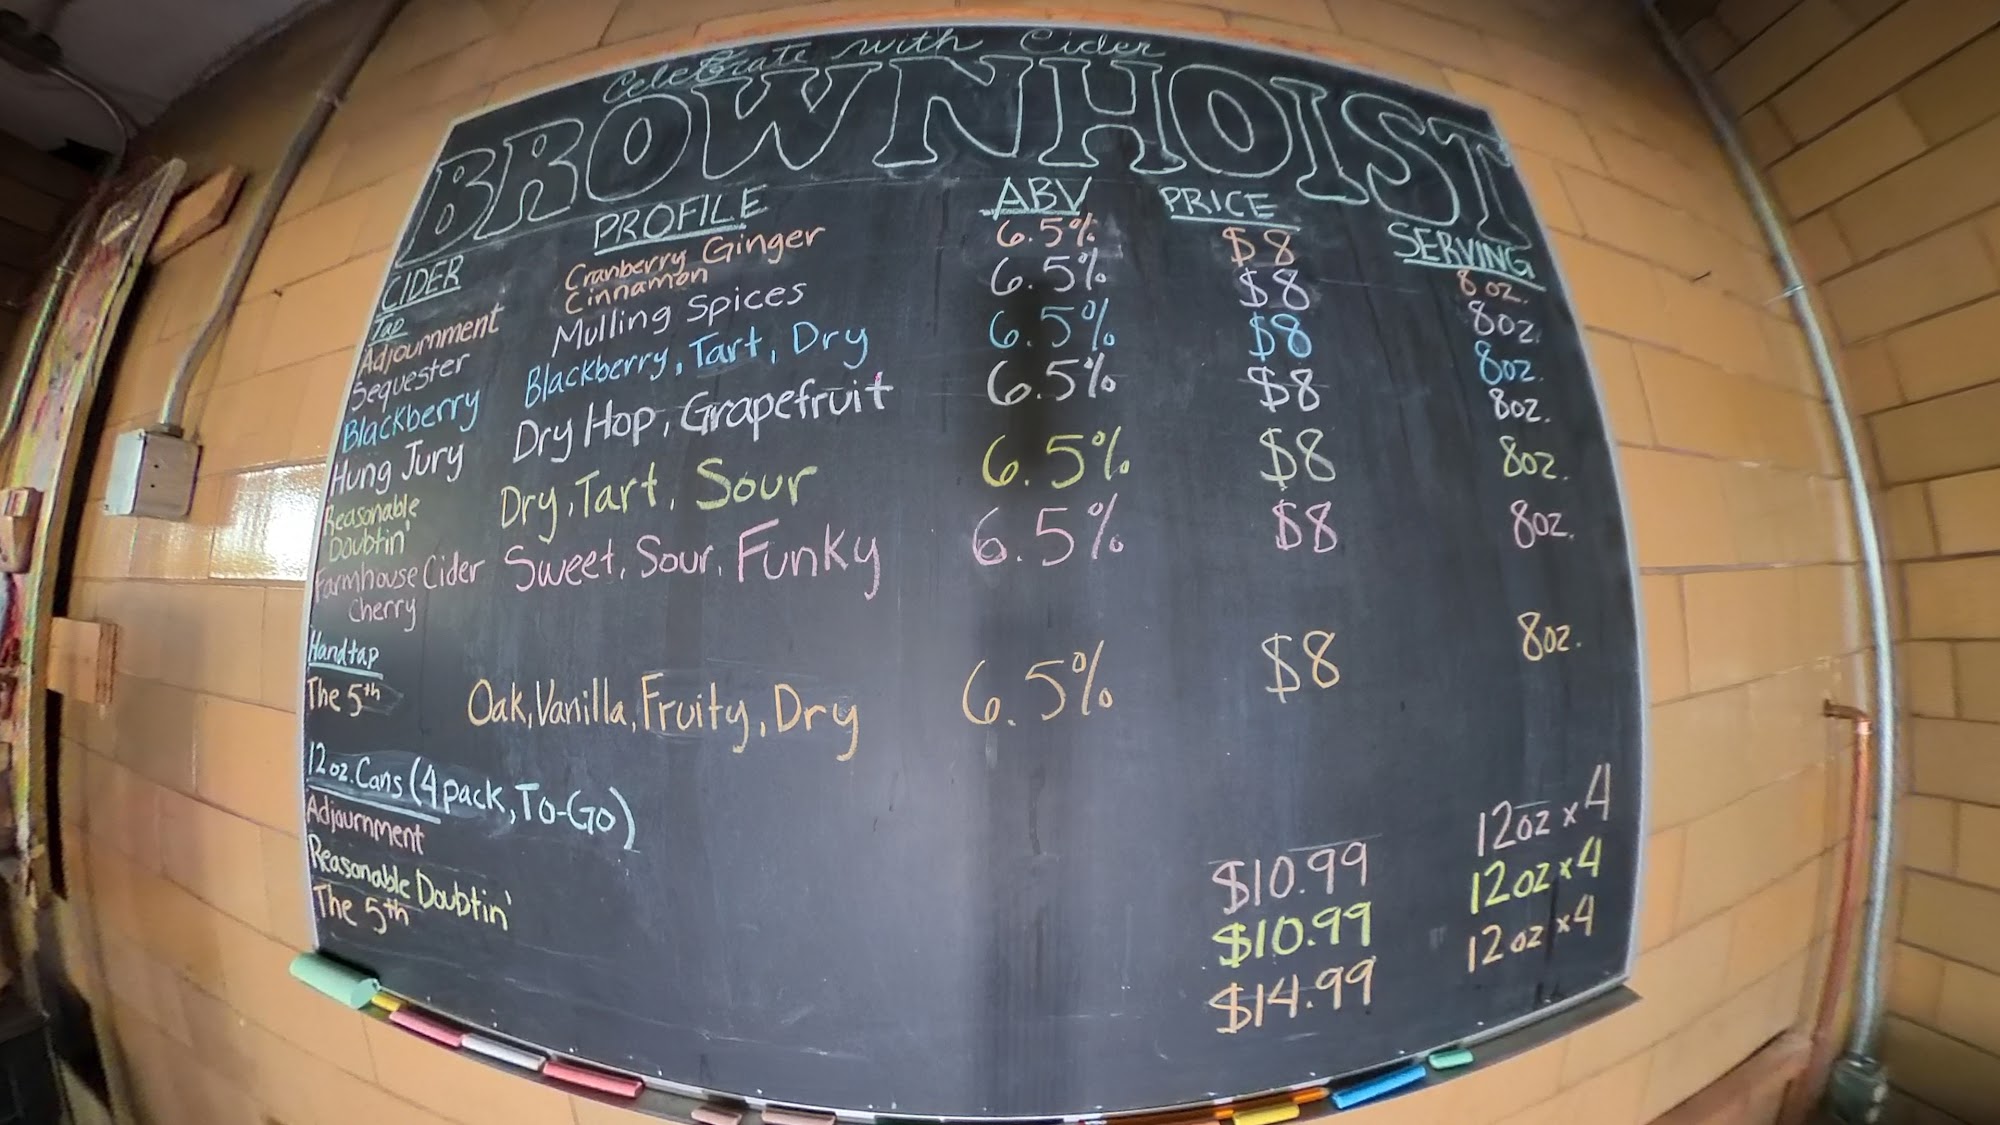 Celebrate with Cider
BROWNHOIST
CIDER PROFILE ABV PRICE SERVING
Tap
Adjournment Cranberry Ginger Cinnamon 6.5% $8 8oz.
Sequester Mulling Spices 6.5% $8 8oz.
Blackberry Blackberry, Tart, Dry 6.5% $8 8oz.
Hung Jury Dry Hop, Grapefruit 6.5% $8 8oz.
Reasonable Doubtin' Dry, Tart, Sour 6.5% $8 8oz.
Farmhouse Cider Cherry Sweet, Sour, Funky 6.5% $8 8oz.
Handtap
The 5th Oak, Vanilla, Fruity, Dry 6.5% $8 8oz.
12oz. Cans (4 pack, To-Go)
Adjournment $10.99 12oz x 4
Reasonable Doubtin' $10.99 12oz x 4
The 5th $14.99 12oz x 4